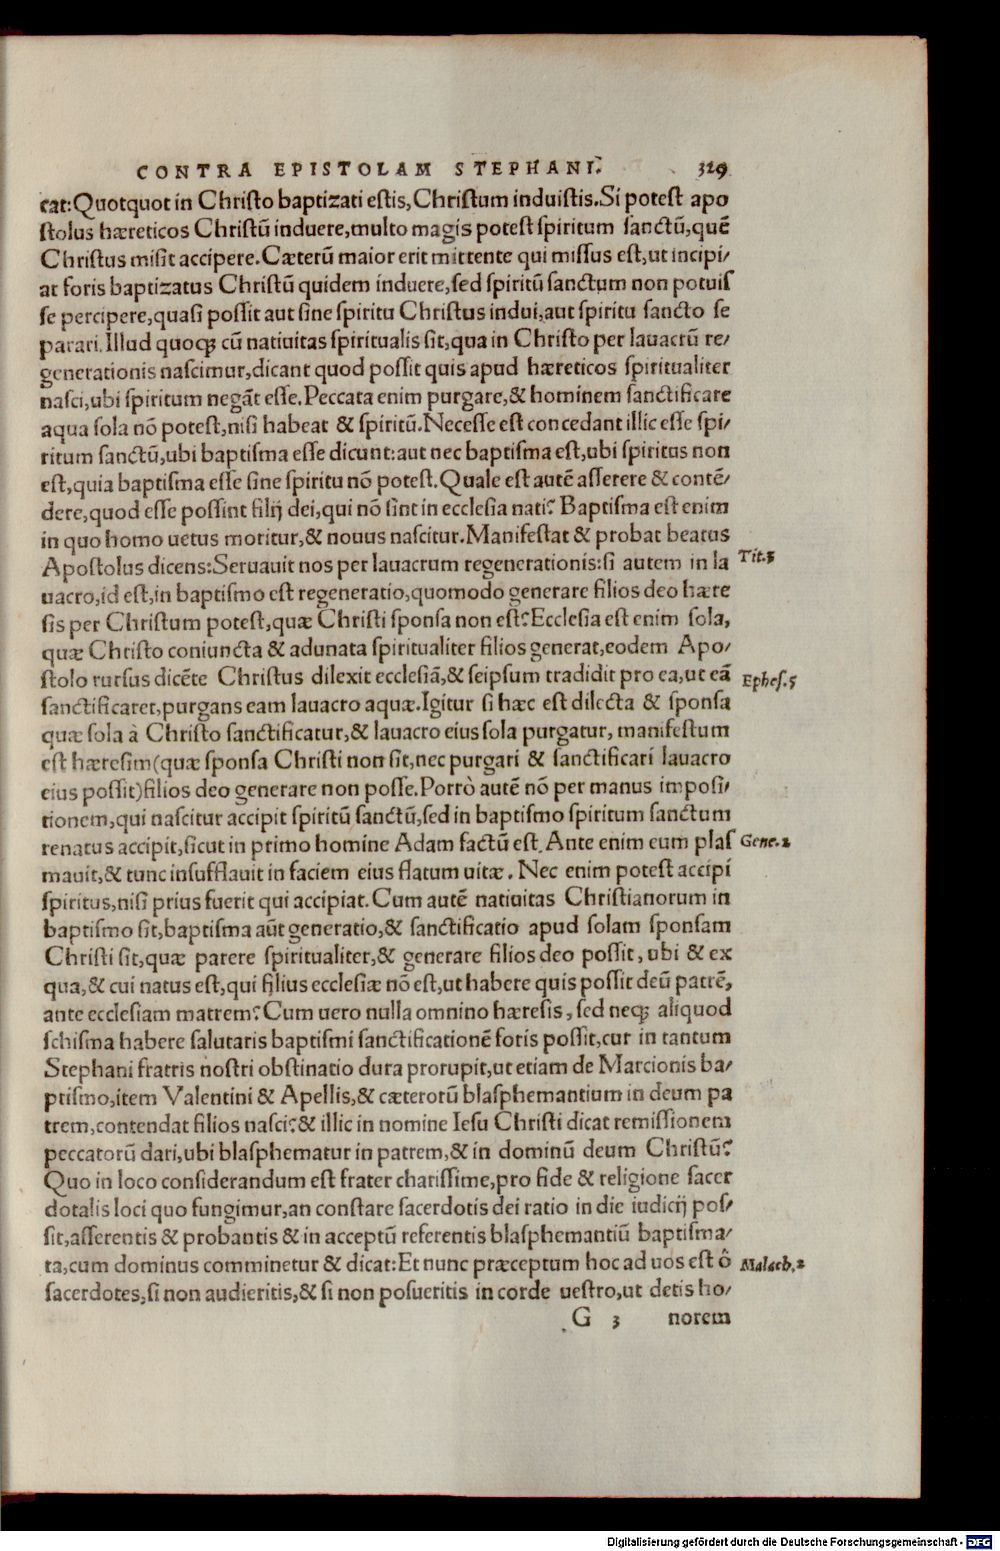 CONTRA EPISTOLAM STEPHANI. 329
cat:Quotquot in Christo baptizati estis,Christum induistis.Si potest apo
stolus hæreticos Christũ induere,multo magis potest spiritum sanctũ,quẽ
Christus misit accipere.Cæterũ maior erit mittente qui missus est,ut incipi/
at foris baptizatus Christũ quidem induere,sed spiritũ sanctum non potuis
se percipere,quasi possit aut sine spiritu Christus indui,aut spiritu sancto se
parari.Illud quoq; cũ natiuitas spiritualis sit,qua in Christo per lauacrũ re/
generationis nascimur,dicant quod possit quis apud hæreticos spiritualiter
nasci,ubi spiritum negãt esse.Peccata enim purgare,& hominem sanctificare
aqua sola nõ potest,nisi habeat & spiritũ.Necesse est concedant illic esse spi/
ritum sanctũ,ubi baptisma esse dicunt:aut nec baptisma est,ubi spiritus non
est,quia baptisma esse sine spiritu nõ potest.Quale est autẽ asserere & contẽ/
dere,quod esse possint filij dei,qui nõ sint in ecclesia nati? Baptisma est enim
in quo homo uetus moritur,& nouus nascitur.Manifestat & probat beatus
Apostolus dicens:Seruauit nos per lauacrum regenerationis:si autem in la Tit.3
uacro,id est,in baptismo est regeneratio,quomodo generare filios deo hære
sis per Christum potest,quæ Christi sponsa non est?Ecclesia est enim sola,
quæ Christo coniuncta & adunata spiritualiter filios generat,eodem Apo/
stolo rursus dicẽte Christus dilexit ecclesiã,& seipsum tradidit pro ea,ut eã Ephes.5
sanctificaret,purgans eam lauacro aquæ.Igitur si hæc est dilecta & sponsa
quæ sola à Christo sanctificatur,& lauacro eius sola purgatur, manifestum
est hæresim(quæ sponsa Christi non sit,nec purgari & sanctificari lauacro
eius possit)filios deo generare non posse.Porrò autẽ nõ per manus imposi/
tionem,qui nascitur accipit spiritũ sanctũ,sed in baptismo spiritum sanctum
renatus accipit,sicut in primo homine Adam factũ est.Ante enim eum plas Gene.2
mauit,& tunc insufflauit in faciem eius flatum uitæ. Nec enim potest accipi
spiritus,nisi prius fuerit qui accipiat.Cum autẽ natiuitas Christianorum in
baptismo sit,baptisma aũt generatio,& sanctificatio apud solam sponsam
Christi sit,quæ parere spiritualiter,& generare filios deo possit, ubi & ex
qua,& cui natus est,qui filius ecclesiæ nõ est,ut habere quis possit deũ patrẽ,
ante ecclesiam matrem?Cum uero nulla omnino hæresis, sed neq; aliquod
schisma habere salutaris baptismi sanctificationẽ foris possit,cur in tantum
Stephani fratris nostri obstinatio dura prorupit,ut etiam de Marcionis ba/
ptismo,item Valentini & Apellis,& cæterorũ blasphemantium in deum pa
trem,contendat filios nasci?& illic in nomine Iesu Christi dicat remissionem
peccatorũ dari,ubi blasphematur in patrem,& in dominũ deum Christũ?
Quo in loco considerandum est frater charissime,pro fide & religione sacer
dotalis loci quo fungimur,an constare sacerdotis dei ratio in die iudicij pos/
sit,asserentis & probantis & in acceptũ referentis blasphemantiũ baptisma/
ta,cum dominus comminetur & dicat:Et nunc præceptum hoc ad uos est ô Malach.2
sacerdotes,si non audieritis,& si non posueritis in corde uestro,ut detis ho/
G 3 norem
Digitalisierung gefördert durch die Deutsche Forschungsgemeinschaft - DFG